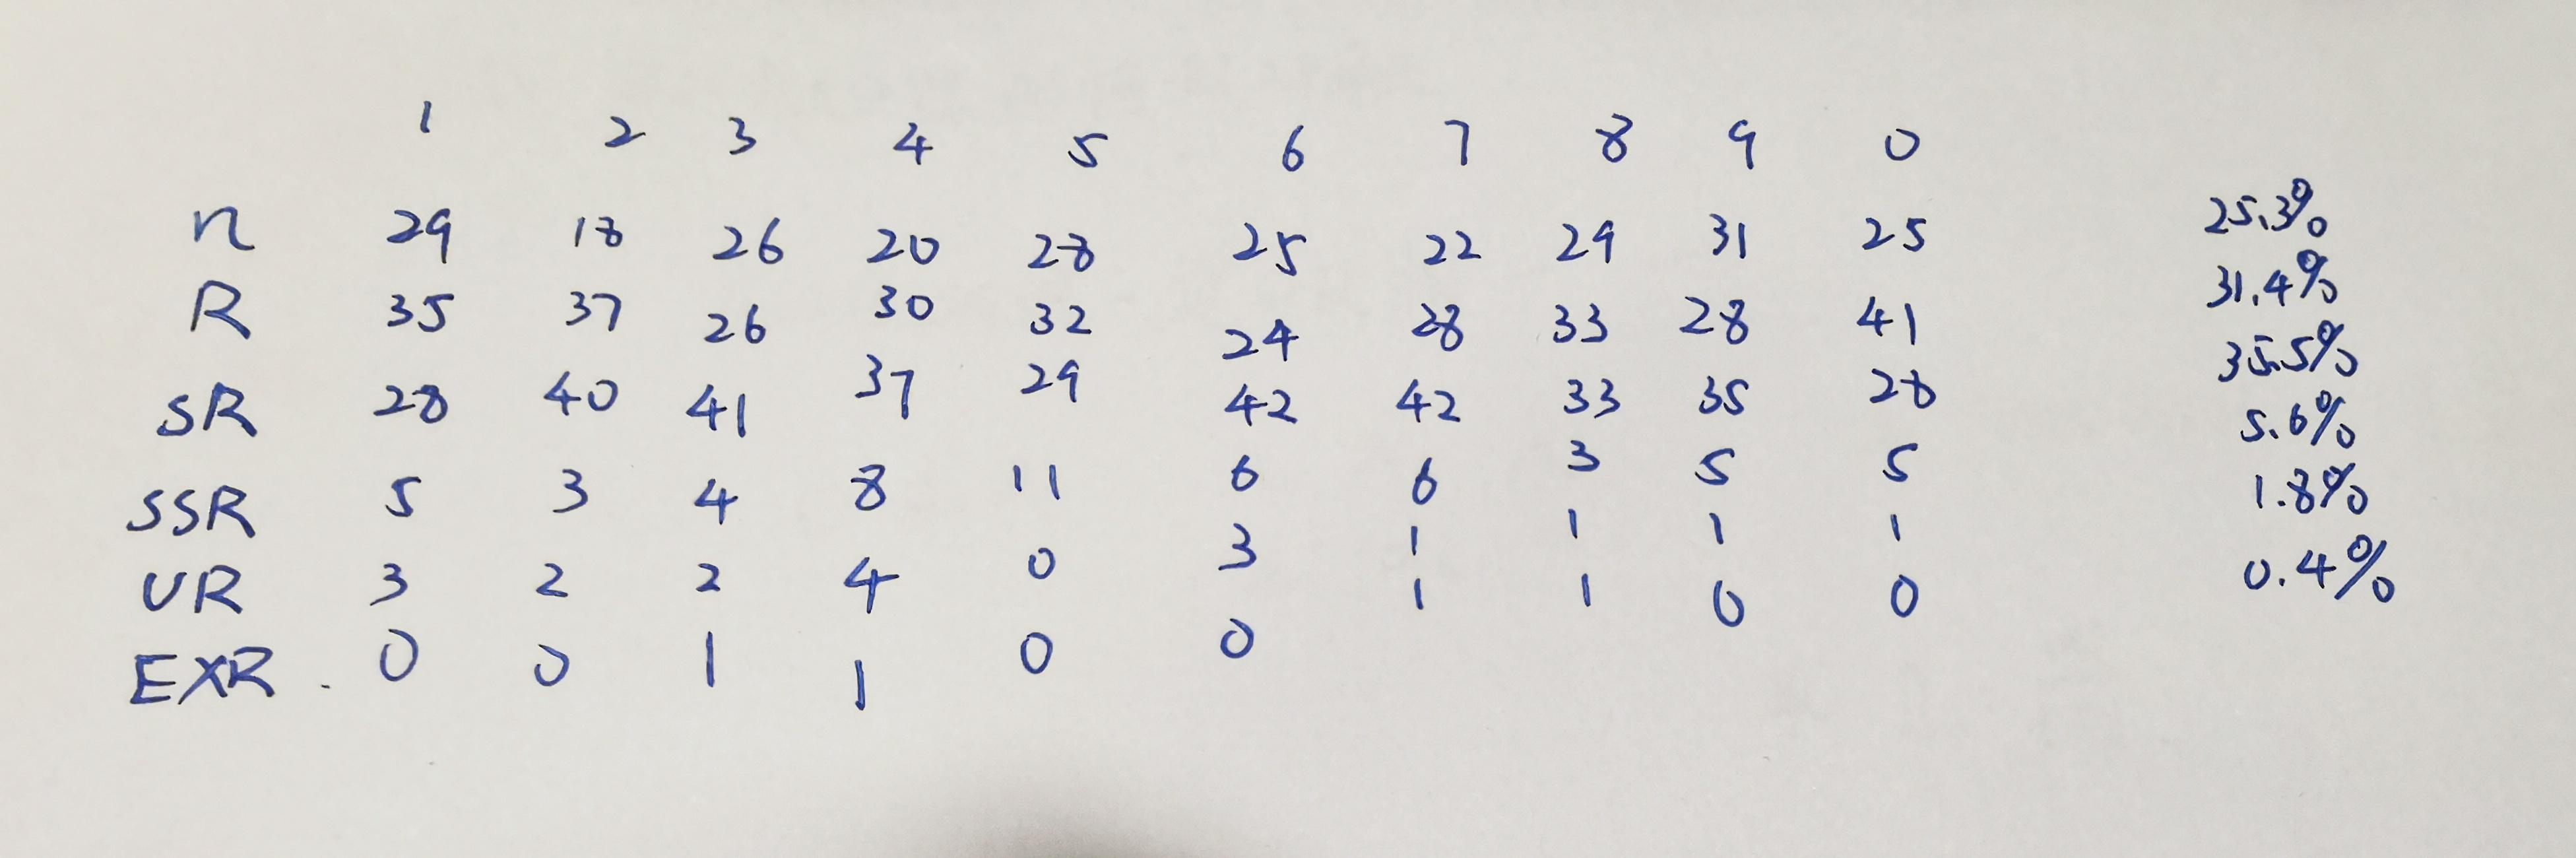 1 2 3 4 5 6 7 8 9 0
n 29 18 26 20 28 25 22 29 31 25 25.3%
R 35 37 26 30 32 24 28 33 28 41 31.4%
SR 28 40 41 37 29 42 42 33 35 28 35.5%
SSR 5 3 4 8 11 6 6 3 5 5 5.6%
UR 3 2 2 4 0 3 1 1 1 1 1.8%
EXR 0 0 1 1 0 0 1 1 0 0 0.4%